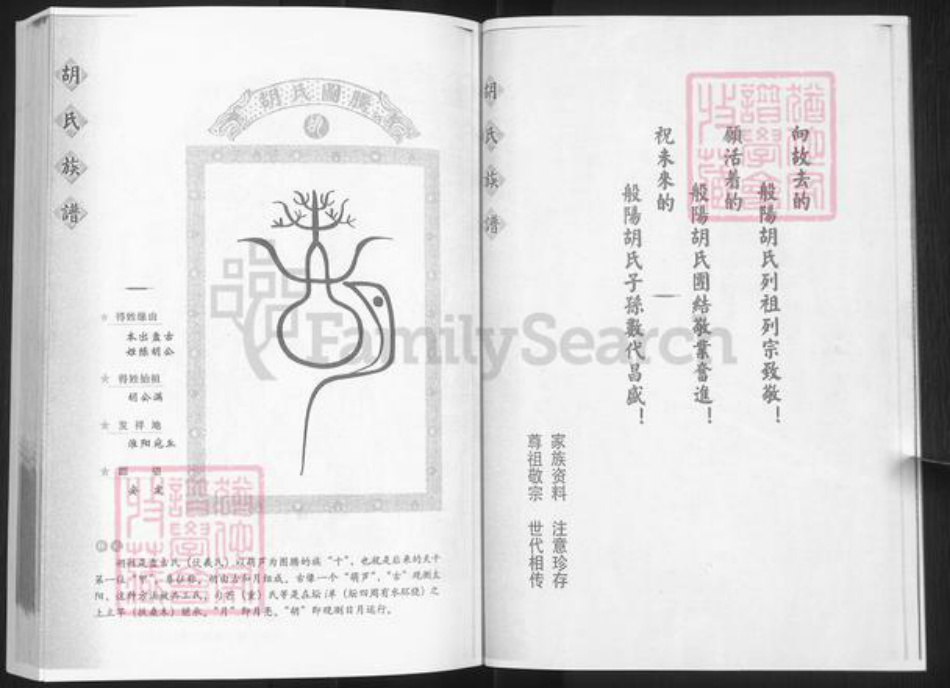 胡氏族譜
胡氏圖騰
一
★ 得姓缘由
本出盘古
姓陈胡公
★ 得姓始祖
胡公满
★ 发祥地
淮阳宛丘
★ 郡 望
安定
胡姓是盘古氏（伏羲氏）以葫芦为图腾的族“十”，也就是后来的天干
第一位“甲”，尊位称。胡由古和月组成，古像一个“葫芦”，“古”观测太
阳，这种方法被共工氏，（重）氏等是在坛洋（坛四周有水环绕）之
上立竿（扶桑木）“月”即月亮，“胡”即观测日月运行。
胡氏族譜
向故去的
般陽胡氏列祖列宗致敬！
願活着的
般陽胡氏團結敬業奮進！
祝未來的
般陽胡氏子孫數代昌盛！
家族资料 注意珍存
尊祖敬宗 世代相传
FamilySearch